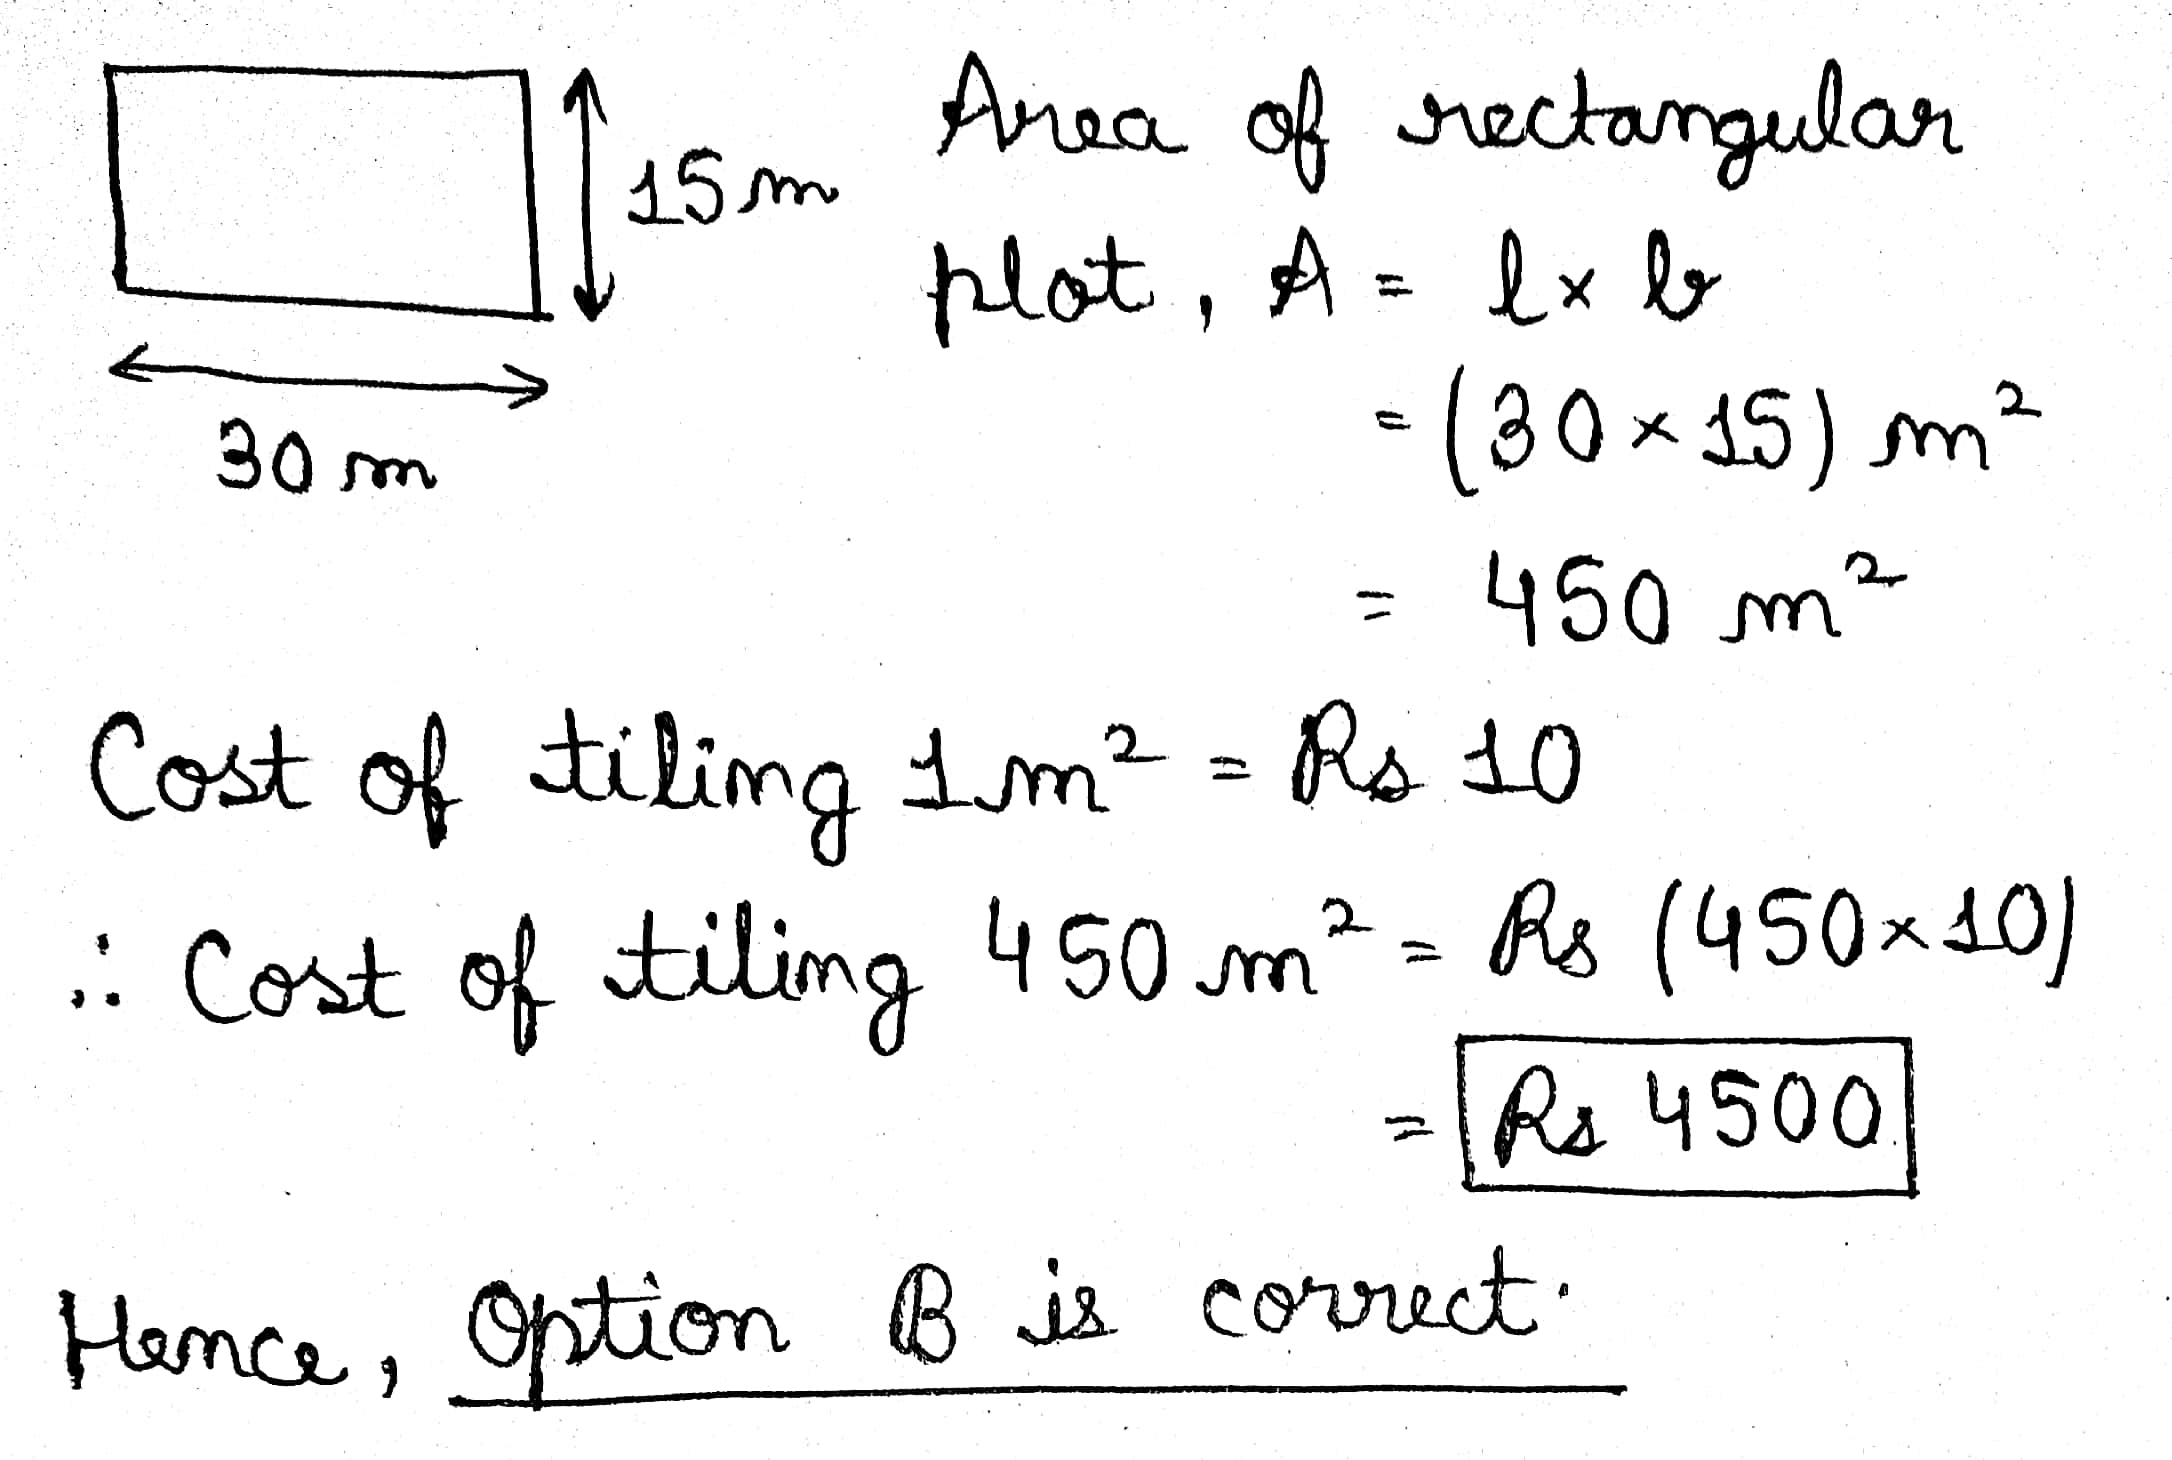 15 m
30 m
Area of rectangular
plot, A = l × b
= (30 × 15) m²
= 450 m²
Cost of tiling 1 m² = Rs 10
∴ Cost of tiling 450 m² = Rs (450 × 10)
= Rs 4500
Hence, Option B is correct.